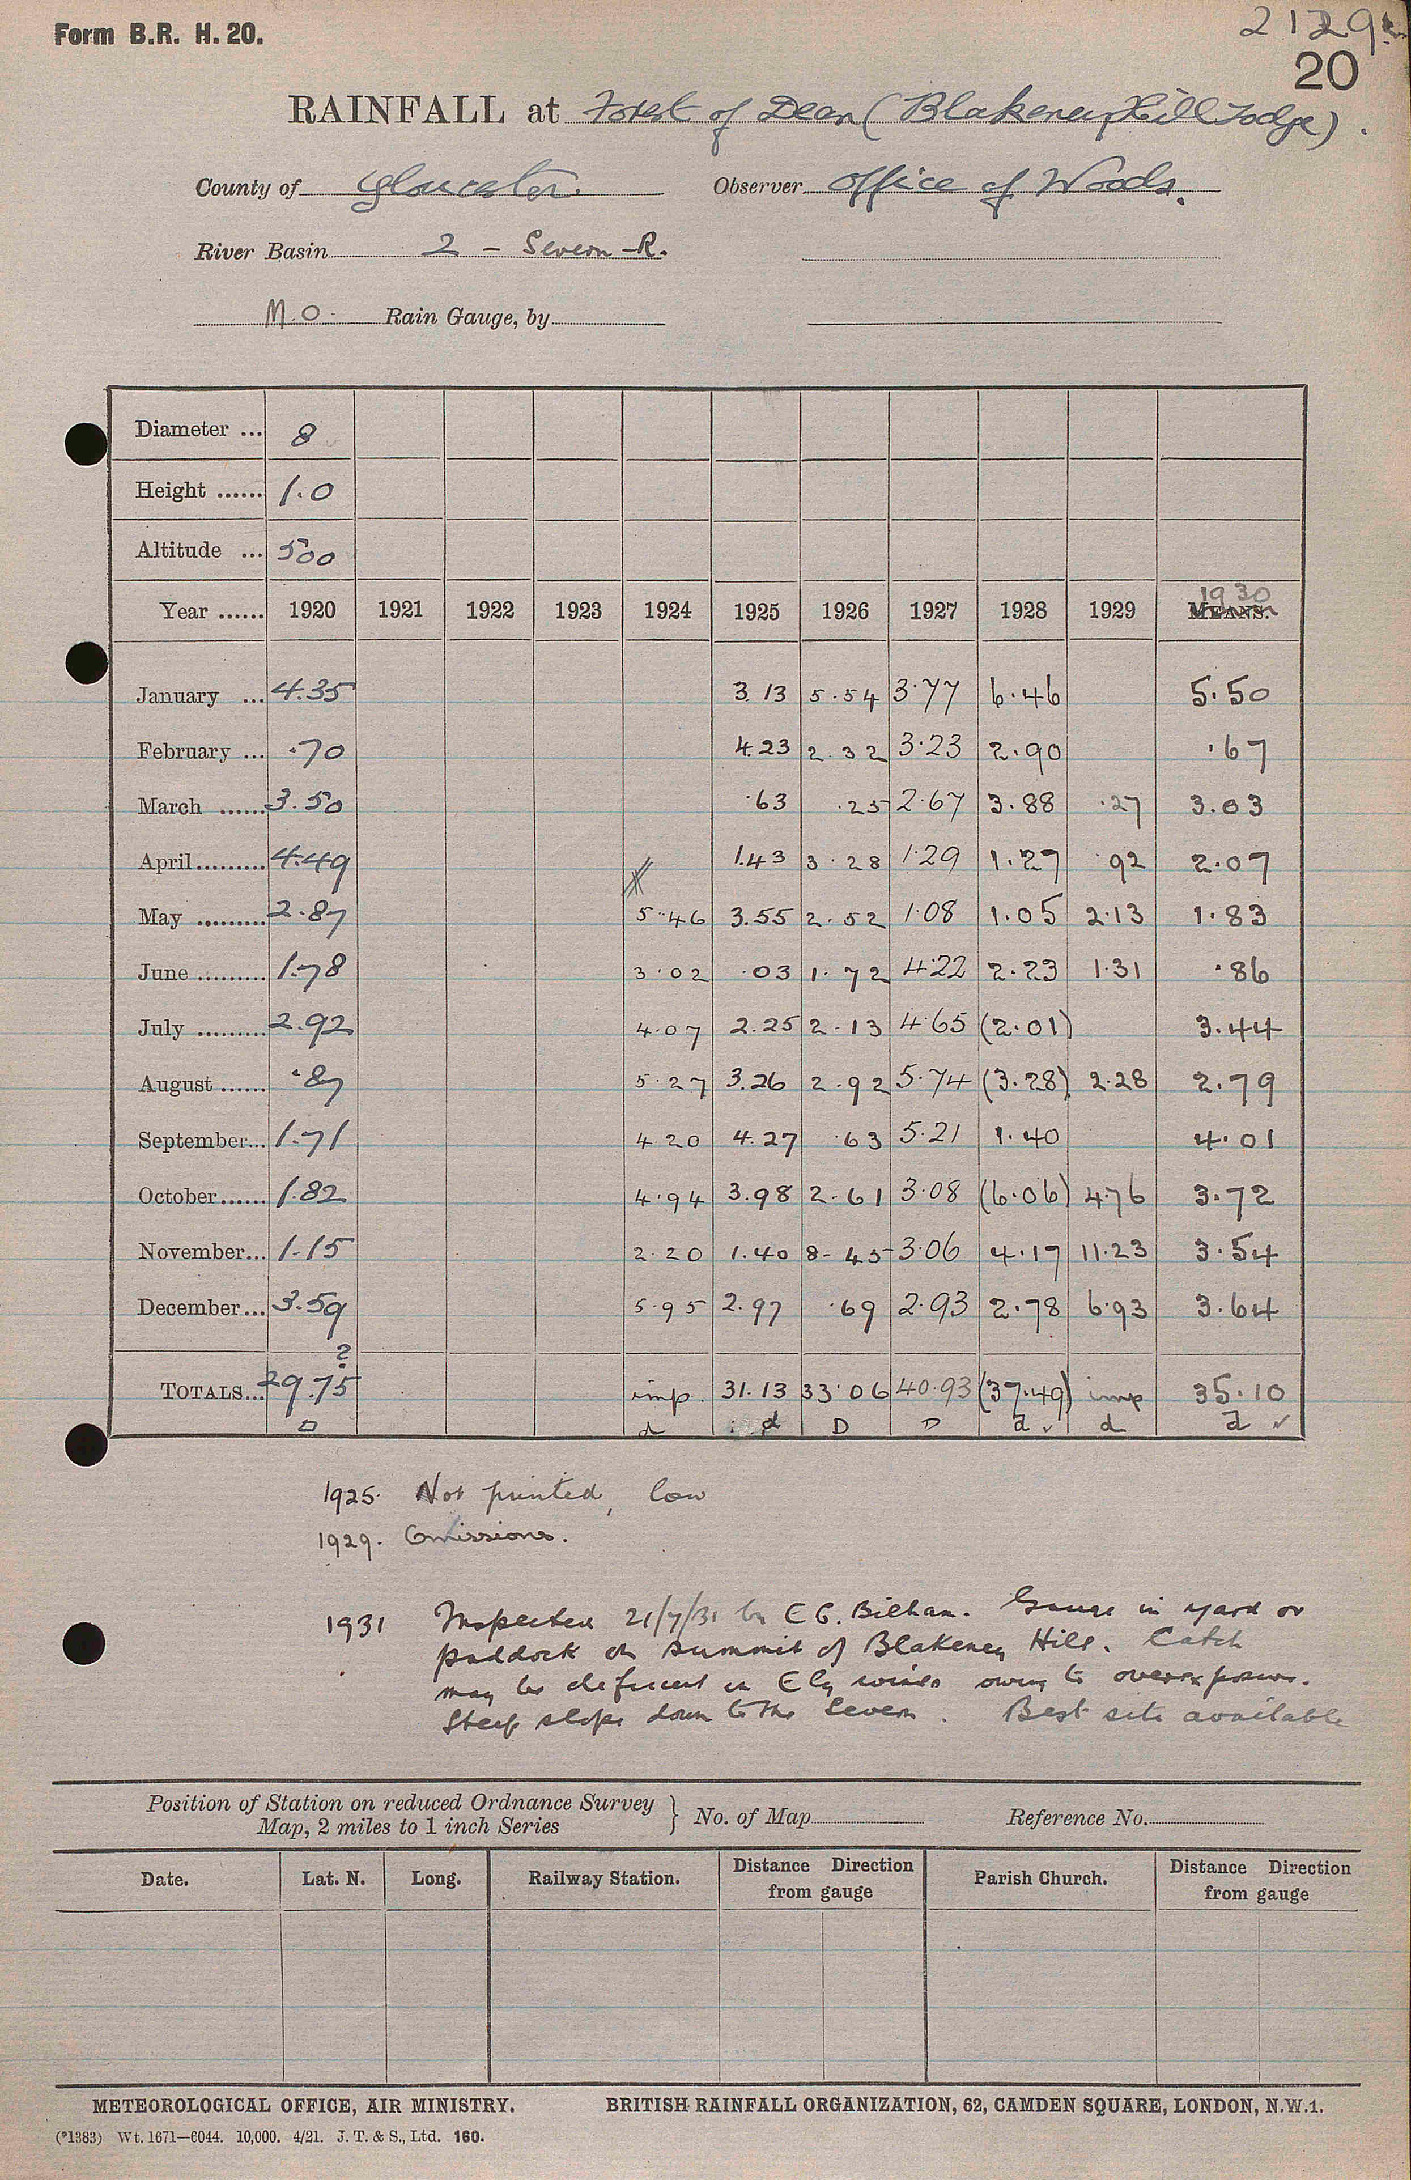 Form B.R. H. 20.
20
RAINFALL at Forest of Dean (Blakeney Hill Lodge).
County of Gloucester. Observer Office of Woods.
River Basin 2 - Severn R.
M.O. Rain Gauge, by
Diameter ... 8
Height ...... 1.0
Altitude ... 500
1930
Year ...... 1920 1921 1922 1923 1924 1925 1926 1927 1928 1929 MEANS.
January ... 4.35 3.13 5.54 3.77 6.46 5.50
February ... .70 4.23 2.32 3.23 2.90 .67
March ...... 3.50 .63 .25 2.67 3.88 .27 3.03
April ......... 4.49 1.43 3.28 1.29 1.27 .92 2.07
May ......... 2.87 5.46 3.55 2.52 1.08 1.05 2.13 1.83
June ......... 1.78 3.02 .03 1.72 4.22 2.23 1.31 .86
July ......... 2.92 4.07 2.25 2.13 4.65 (2.01) 3.44
August ...... .87 5.27 3.26 2.92 5.74 (3.28) 2.28 2.79
September... 1.71 4.20 4.27 .63 5.21 1.40 4.01
October...... 1.82 4.94 3.98 2.61 3.08 (6.06) 4.76 3.72
November... 1.15 2.20 1.40 8.45 3.06 4.17 11.23 3.54
December... 3.59 5.95 2.97 .69 2.93 2.78 6.93 3.64
?
TOTALS... 29.75 imp. 31.13 33.06 40.93 (37.49) imp 35.10
D d d D D d ✓ d d ✓
1925. Not printed, low
1929. Omissions.
1931 Inspected 21/7/31 by E.G. Bilham. Gauge in yard or
paddock on summit of Blakeney Hill. Catch
may be deficient in Ely winds owing to overexposure.
Steep slope down to the Severn. Best site available
Position of Station on reduced Ordnance Survey
Map, 2 miles to 1 inch Series } No. of Map Reference No.
Date. Lat. N. Long. Railway Station. Distance Direction from gauge Parish Church. Distance Direction from gauge
METEOROLOGICAL OFFICE, AIR MINISTRY. BRITISH RAINFALL ORGANIZATION, 62, CAMDEN SQUARE, LONDON, N.W.1.
(*1383) Wt. 1671—6044. 10,000. 4/21. J. T. & S., Ltd. 160.